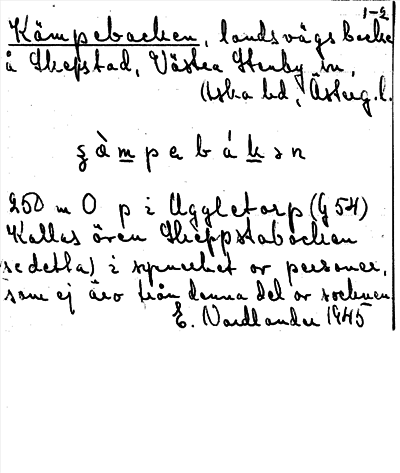 1-2
Kämpebacken, landsvägsbacke
å Skepstad, Västra Stenby sn,
Aska hd, Österg.l.
250 m O p i Uggletorp (G 54)
Kallas även Skeppstabacken
(se detta) i synnerhet av personer,
som ej äro från denna del av socknen
E. Nordlander 1945